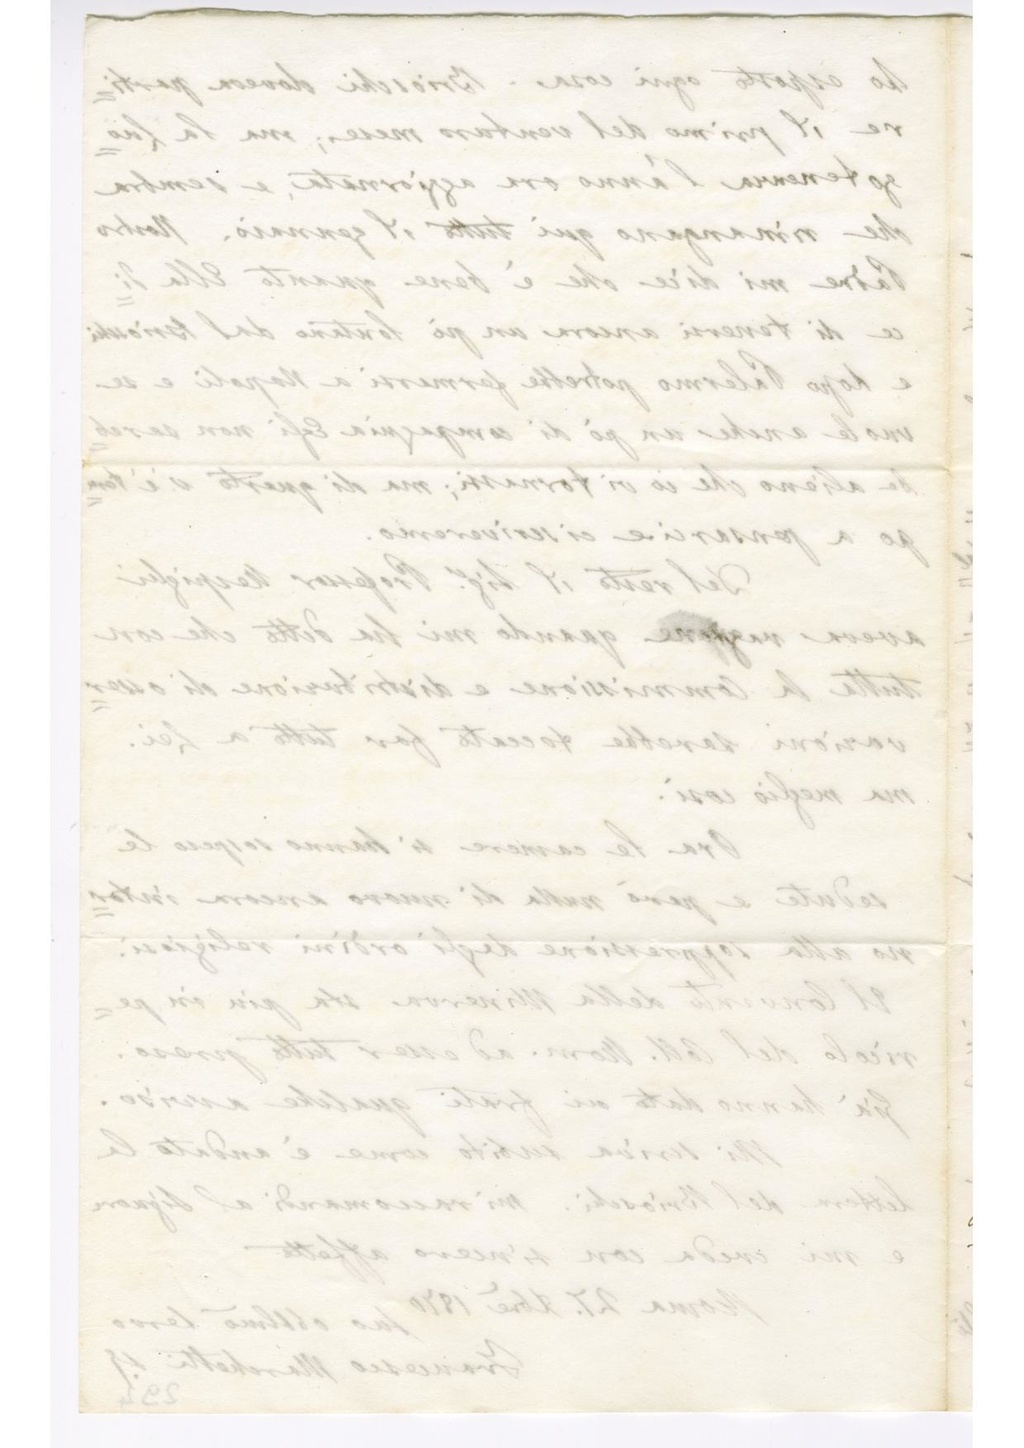 ho esposto ogni cosa. Brioschi doveva parti=
re il primo del venturo mese; ma la Luo=
go tenenza l'anno ora aggiornata, e sembra
che rimangano qui tutto il gennaio. Nostro
Padre mi dice che è bene quanto Ella di=
ce di tenersi ancora un pò lontano dal Brioschi
e dopo Palermo potrebbe fermarsi a Napoli e se
vuole anche un pò di compagnia Egli non sareb=
be alieno che io vi tornassi; ma di questo v'è tem=
po a pensarci e ci scriveremo.
Del resto il Sig.r Professor Respighi
aveva ragione quando mi ha detto che con
tutta la Commissione e distribuzione di osser=
vazioni sarebbe toccato far tutto a Lei.
ma meglio così.
Ora le camere si hanno sospeso le
sedute e però nulla di nuovo ancora intor=
no alla soppressione degli ordini religiosi.
Il Convento della Minerva sta più in pe=
ricolo del Coll. Rom. ad esser tutto preso.
Già hanno dato ai frati qualche avviso.
Mi scriva subito come è andata la
lettera del Brioschi. Mi raccomandi al Signore
e mi creda con sincero affetto
Roma 27. Xbre 1870
suo obblmo servo
Francesco Marchetti S.J.
294